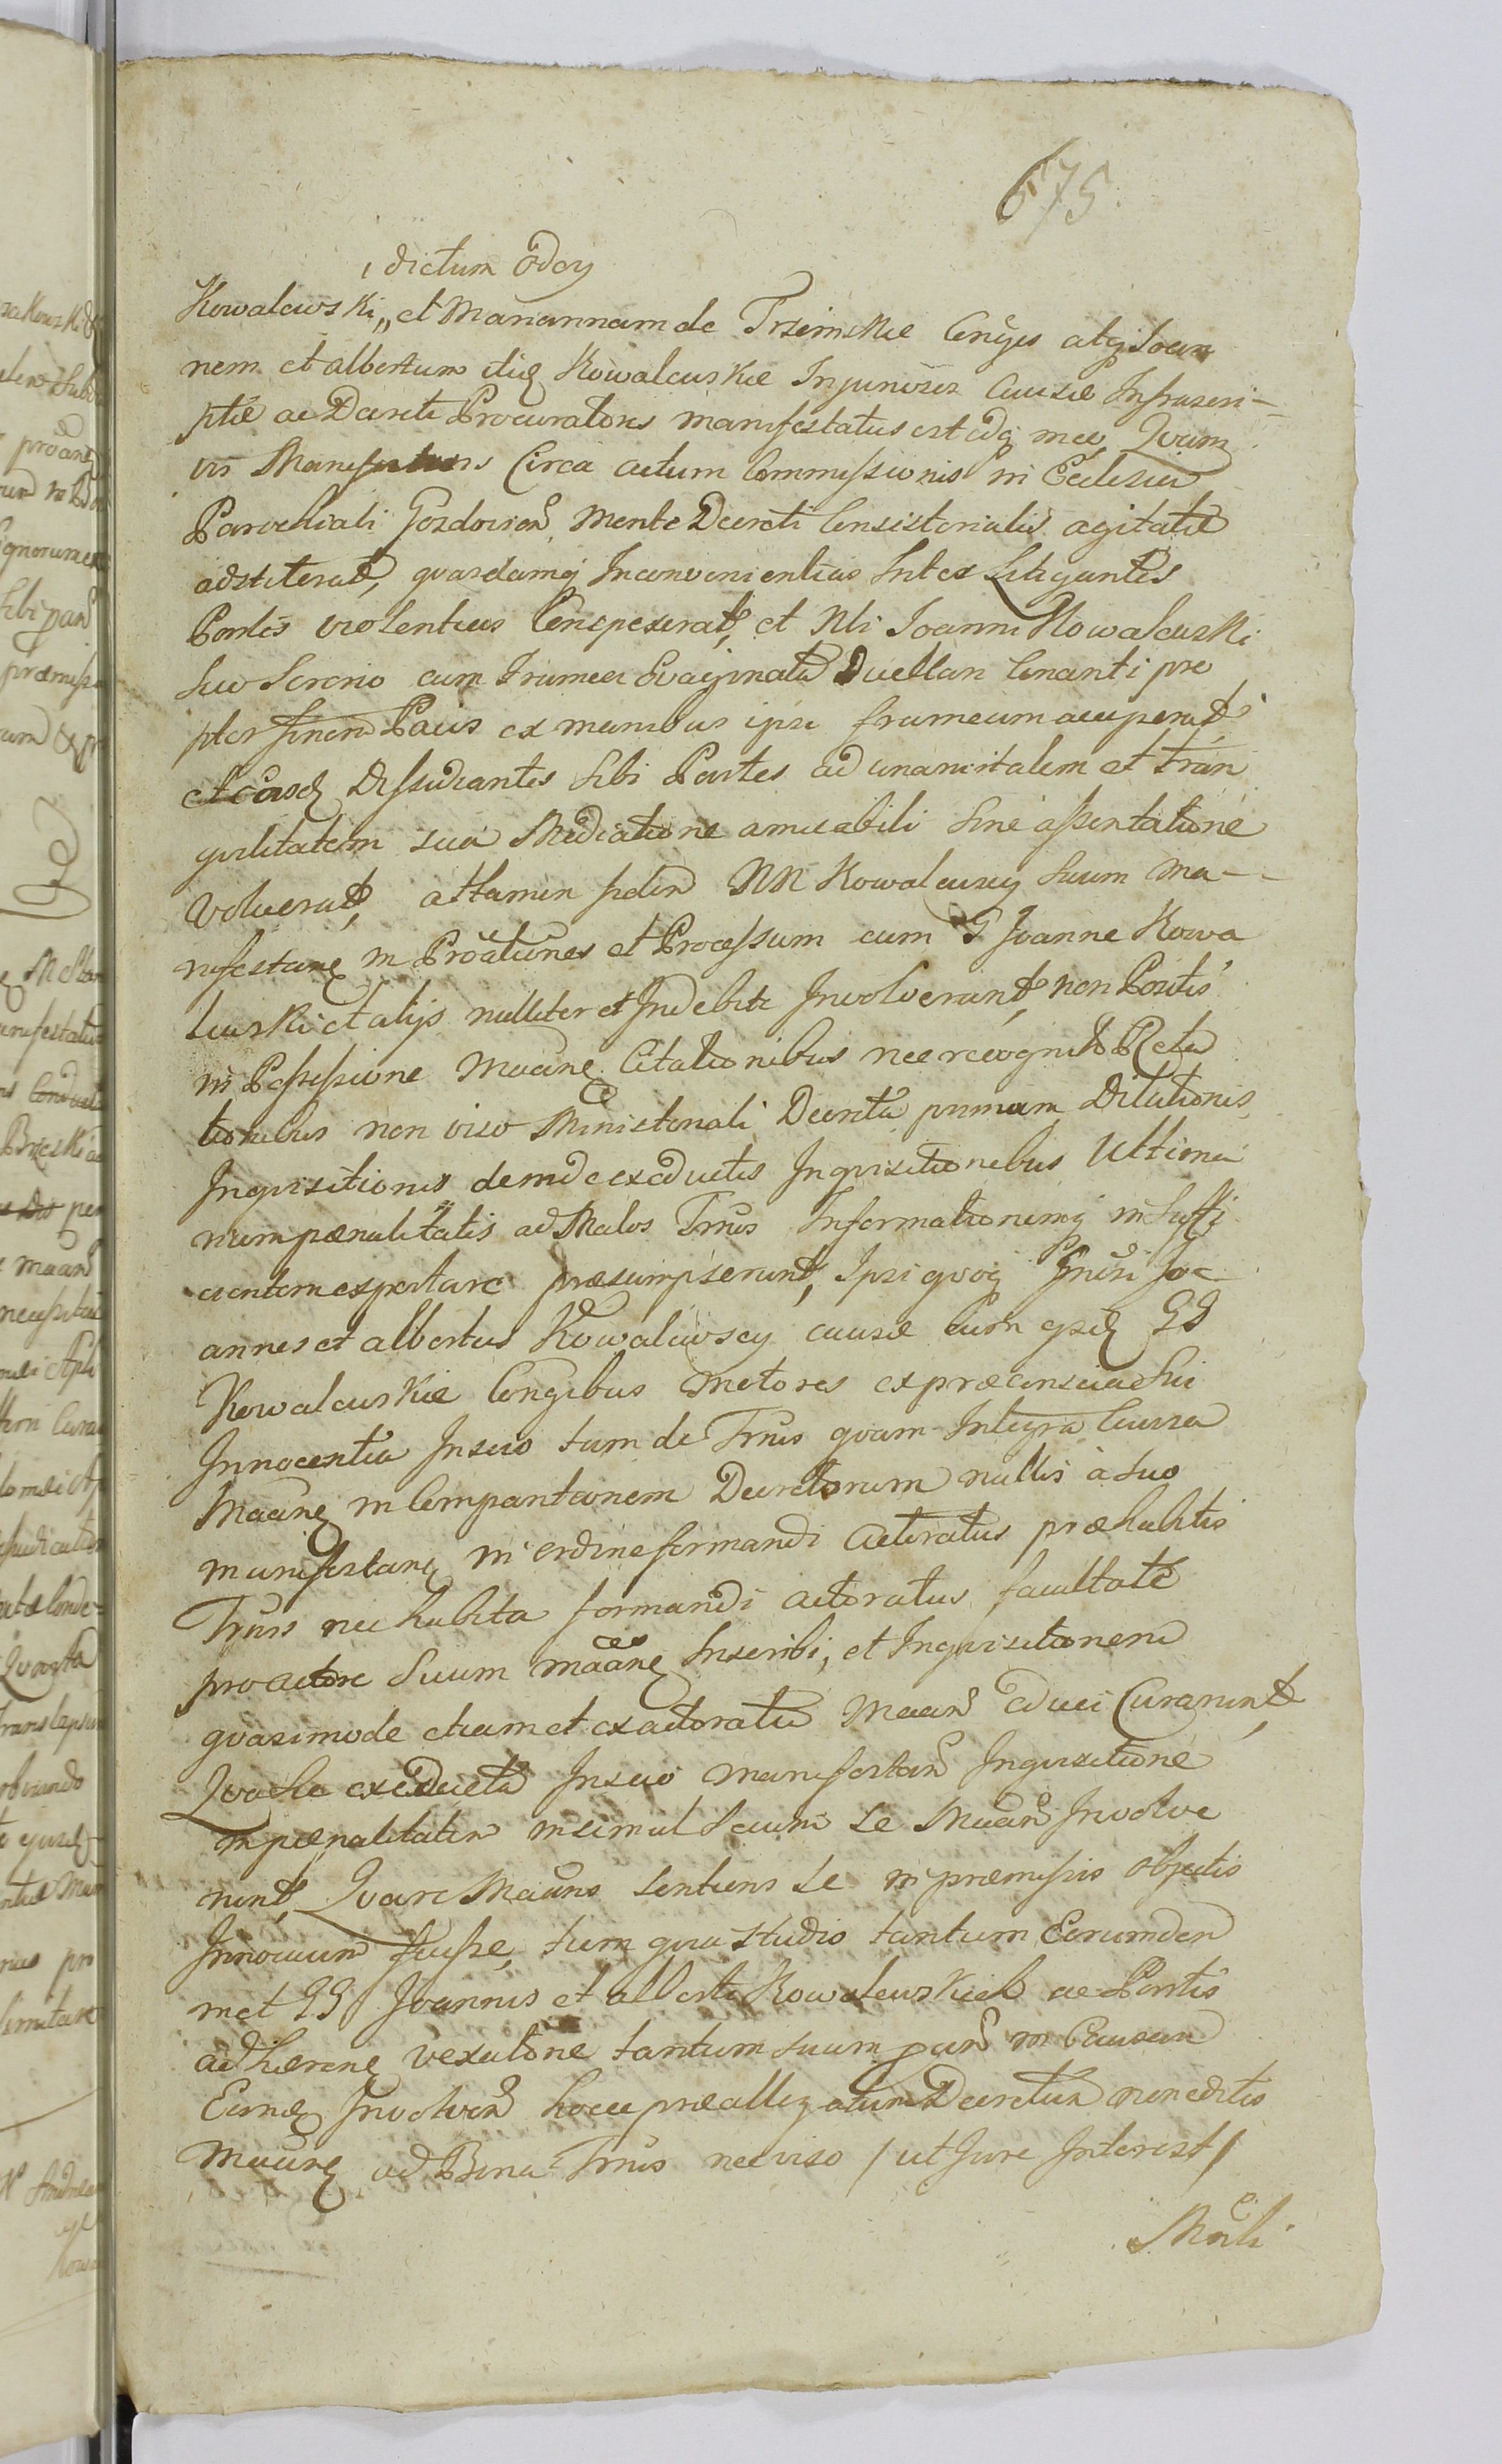 675
dictum Odoy
Kowalewski, et Mariannam de Trzcinskie Conges atq Joan
nem et albertum itid Kowalewskie Injunores Causae Infrascri-
ptae ac Decreti Procuratores manifestatus est idq meo Quam
vis Manifestans Circa actum Commissionis in Ecclesia
Parochiali Gozdovien mente Decreti Consistorialis agitatae
adstiterat, quasdamq Inconvenientias Inter Litigantes
Partes violentius Compescerat, et Nli Joanni Kowalewski
suo Sororio cum Framea Evaginata Duellan Conanti pro
pter finem Pacis ex manibus ipsi frameam acceperat,
et easd Dissidiantes sibi Partes ad unanimitatem et tran
quilitatem sua Mediatione amicabili sine assentatione
voluerat, attamen iidem NN Kowalewscy suum ma-
nifestane in Proationes et Processum cum G Joanne Kowa
lewski et alijs nulliter et Indebite Involverunt, non Positis
in Possessione Maane Citationibus nec recognitis Rela
tionibus non viso Ministeriali Decreta primam Dilationis
Inquisitionis deinde exeductis Inquisitionibus Ultima
rium paenalitatis ad Malos Trnis Informationemq insuffi
cientem exportare praesumpserunt, Ipsi quoq Gnrosi Jo
annes et albertus Kowalewscy causae cum gsd GG
Kowalewskie Congibus motores ex praeconscia sui
Innocentia Inscio tam de Trnis quam Integra Causa
Maane in Comparitionem Decretorum nullis a suo
manifestane in ordine formandi actoratus praehabitis
Trnis nec habita formandi actoratus facultate
pro actore suum maane Inscribi, et Inquisitionem
quasimode etiam et ex actoratu Maan educi Curarunt
Qua sic exeducta Inscio manifestan Inquisitione
in paenalitatem insimul secum se Maan Involve
runt, Quare Maans sentiens se in praemissis objectis
Innocuum fuisse, tum quia studio tantum Eorumdem
met GG Joannis et alberti Kowalewskich ac Partis
adhaerene vexatione tantum suum pan in Causam
Eamd Involven hocce praeallegatum Decretum non editis
Maane ad Bona Trnis nec viso / ut Jure Interest /
Mnli